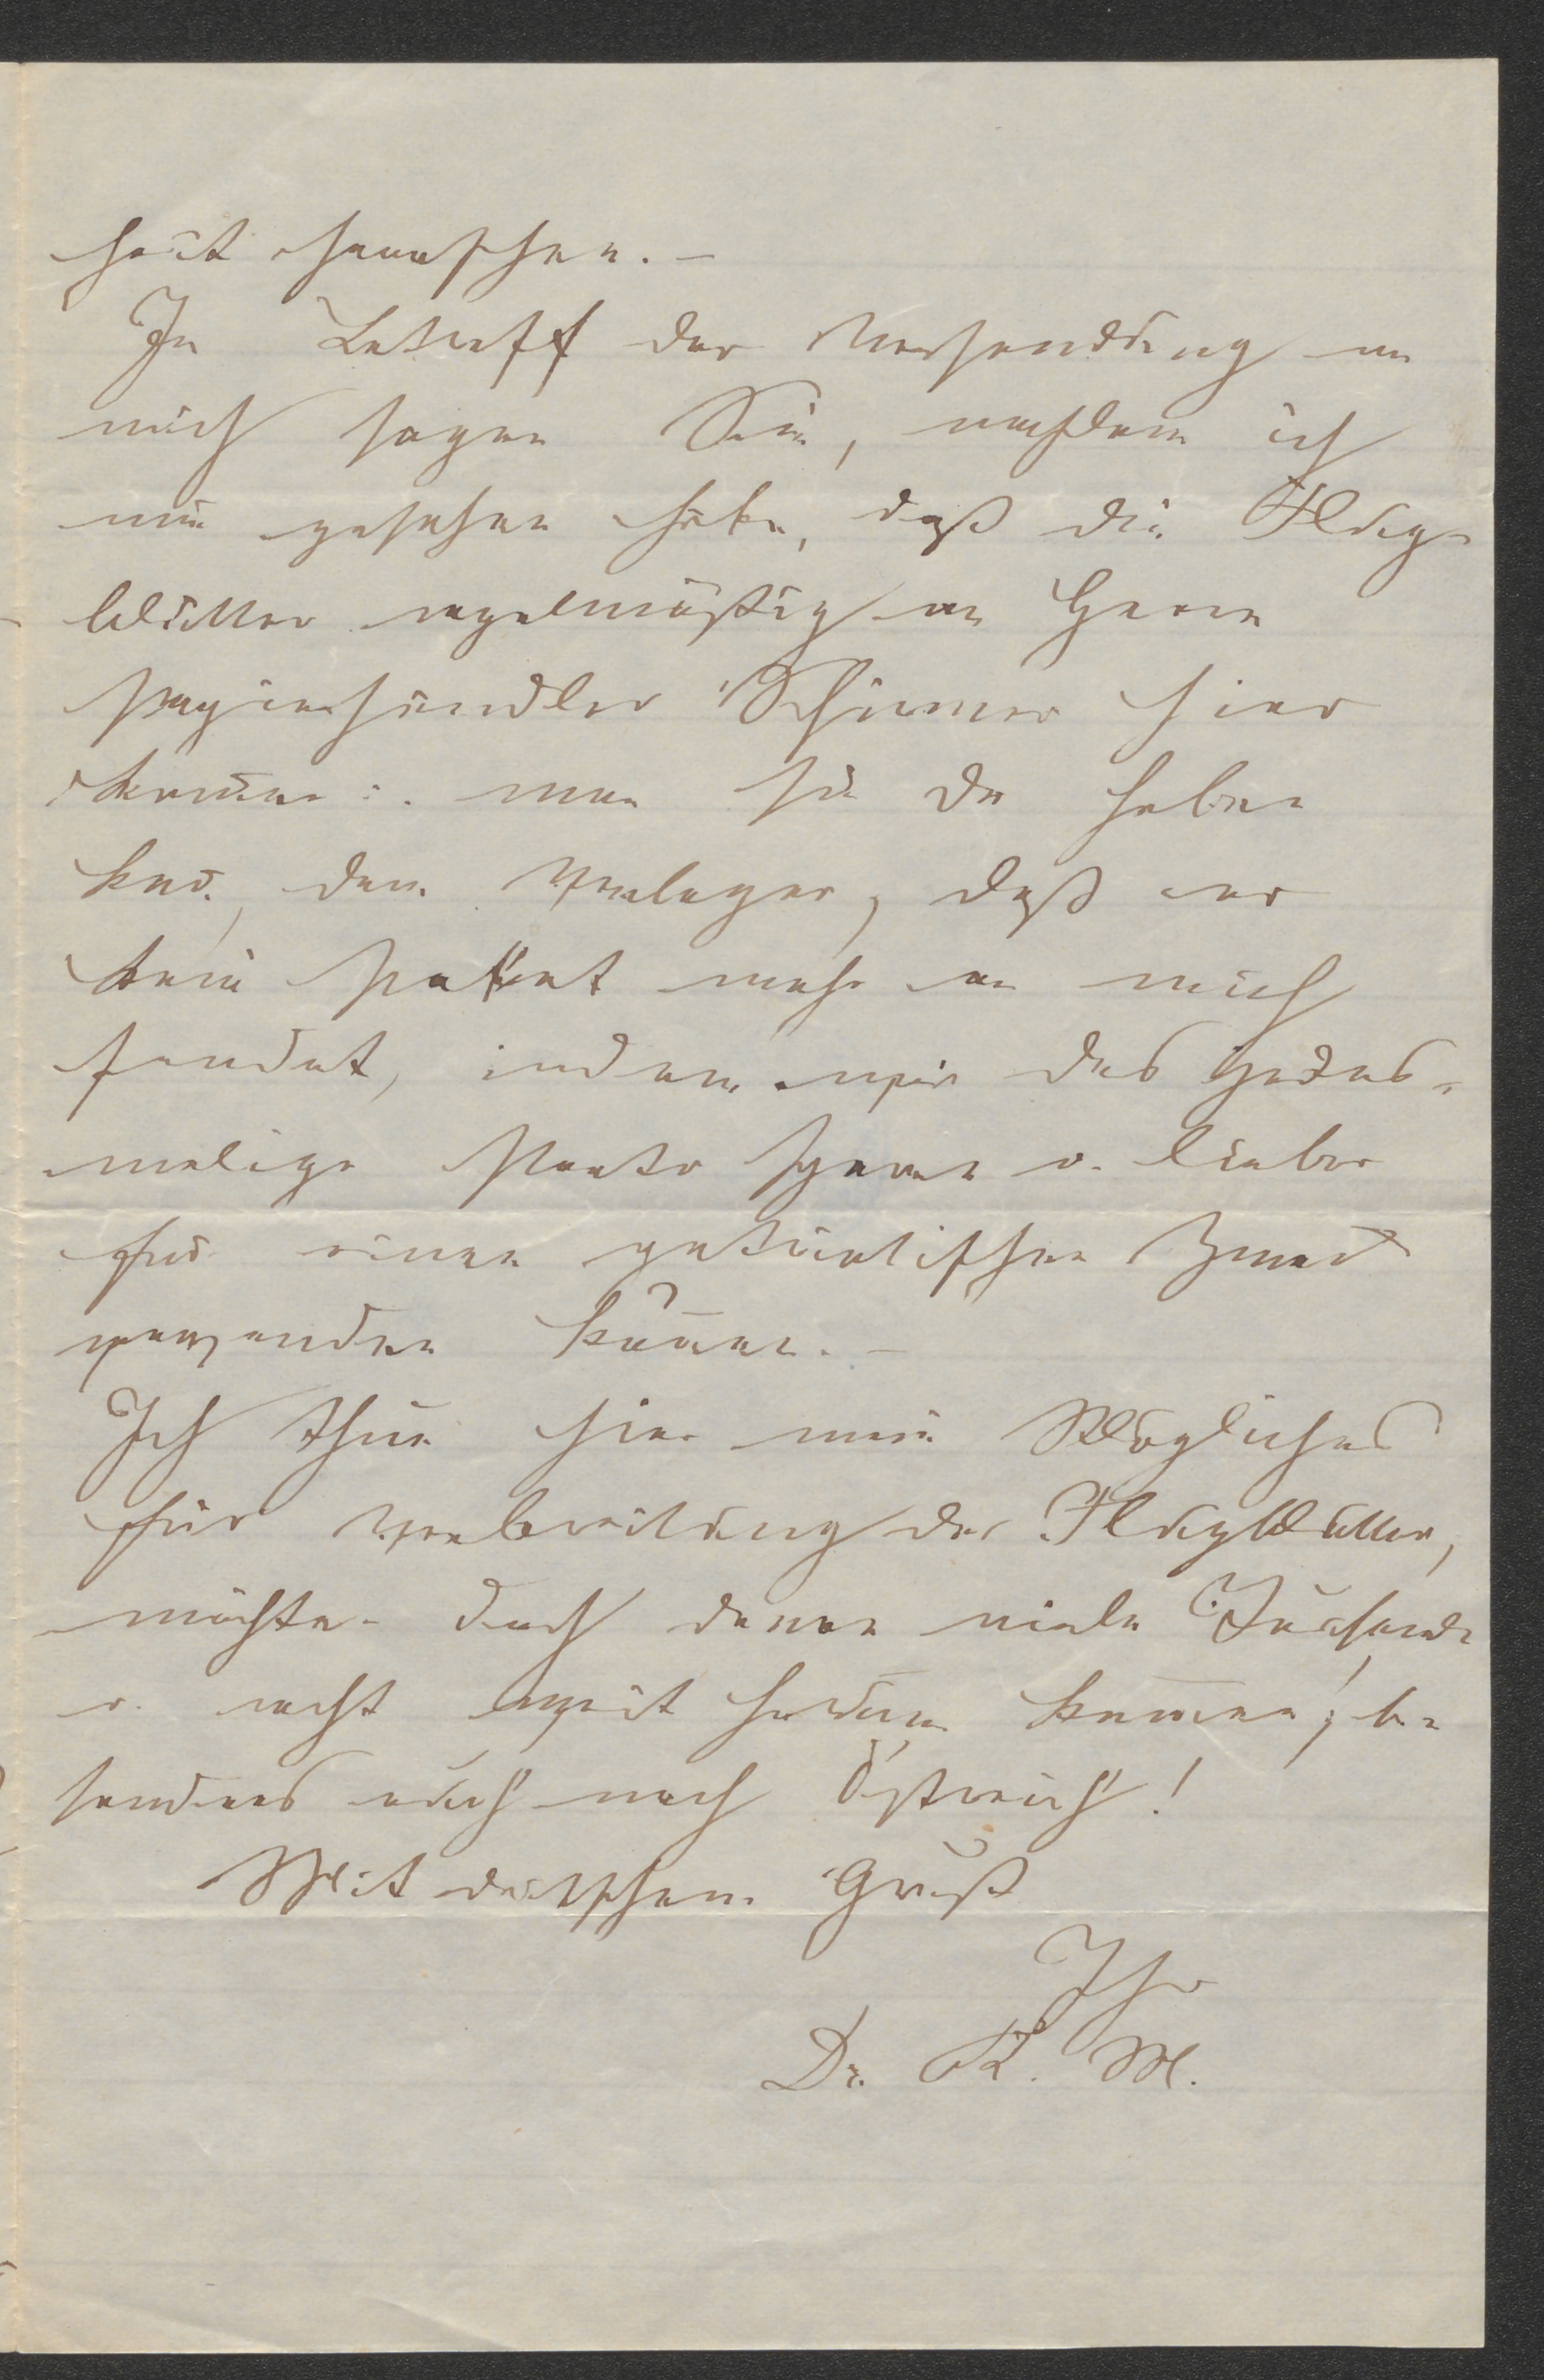 heit herrschen. –
In Betreff der Versendung an
mich sagen Sie, nachdem ich
nun gesehen habe, daß die Flug-
blätter regelmäßig an Herrn
Papierhändler Schirmer hier
kommen u. man sie da haben
kan, dem Verleger, daß er
kein Packet mehr an mich
sendet, indem wir das jedes-
malige Porto sparen u. lieber
für einen patriotischen Zweck
verwenden können. –
Ich thue hier mein Mögliches
für Verbreitung der Flugblätter,
möchten doch deren viele Tausende
u. recht weit herum kommen, be-
sonders auch nach Östreich!
Mit deutschem Gruß
Ihr
Dr. K. M.